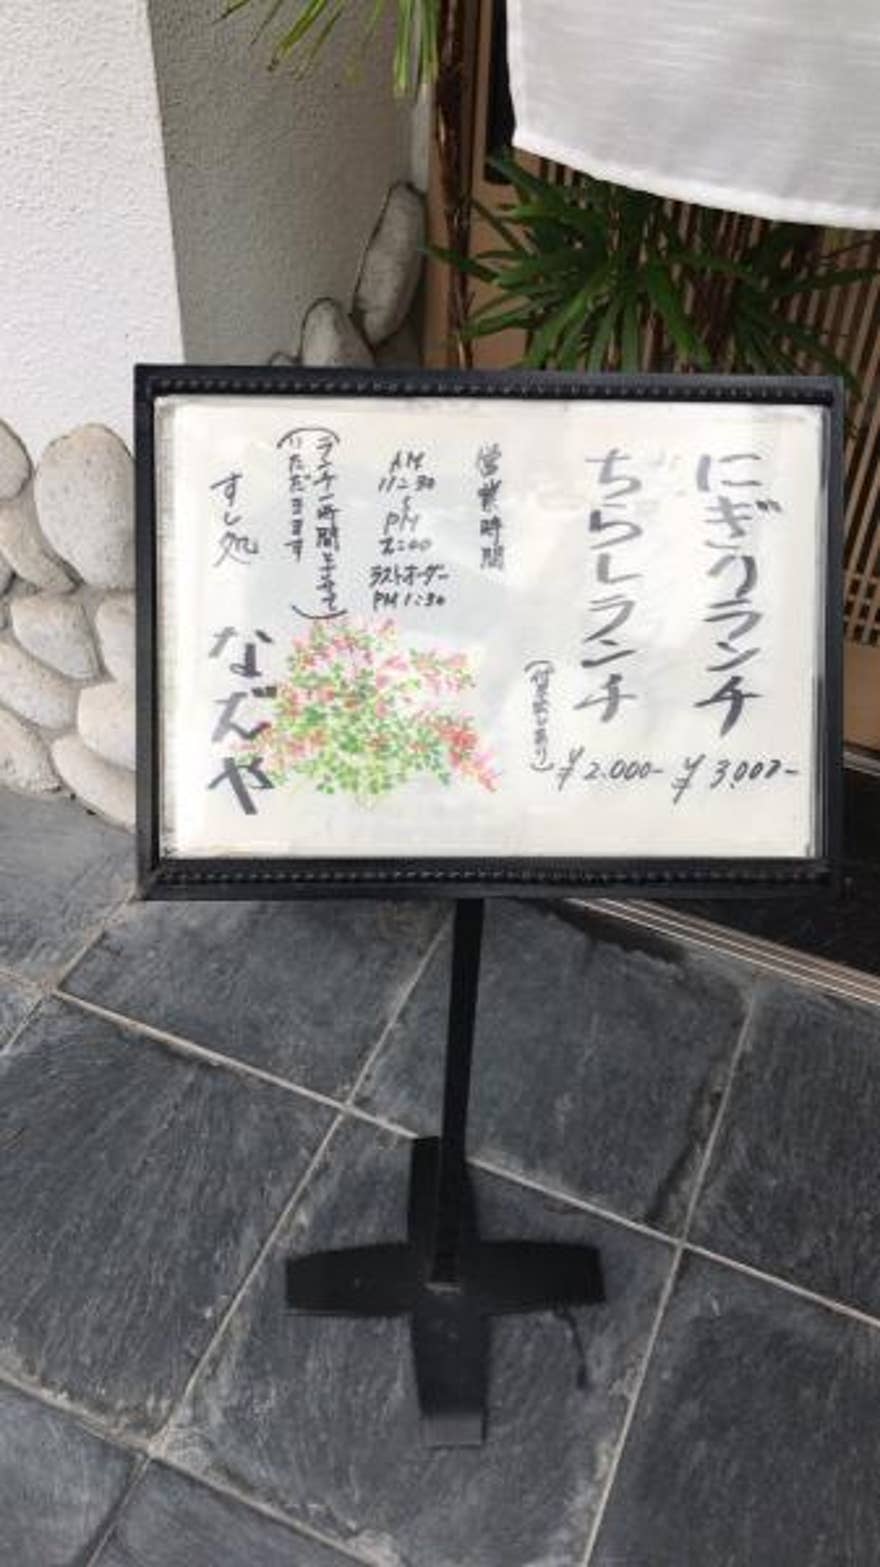 にぎりランチ
¥3.000-
ちらしランチ
¥2.000-
営業時間
AM
11:30
〜
PM
2:00
ラストオーダー
PM 1:30
(ランチ一時間とさせて
いただきます)
すし処
なだや